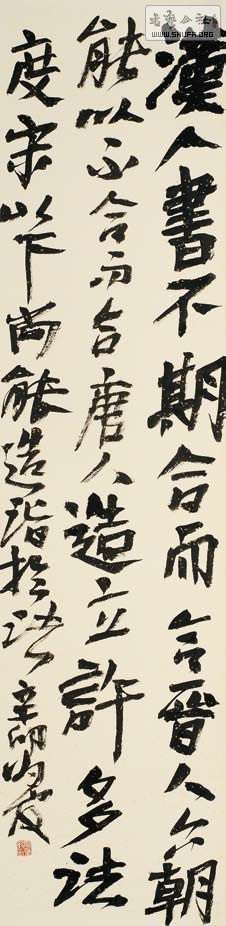 書藝公社
WWW.SHUFA.ORG
漢人書不期合而合晉人六朝
能以不合而合唐人造立許多法
度宋以下尚能造於法
辛卯